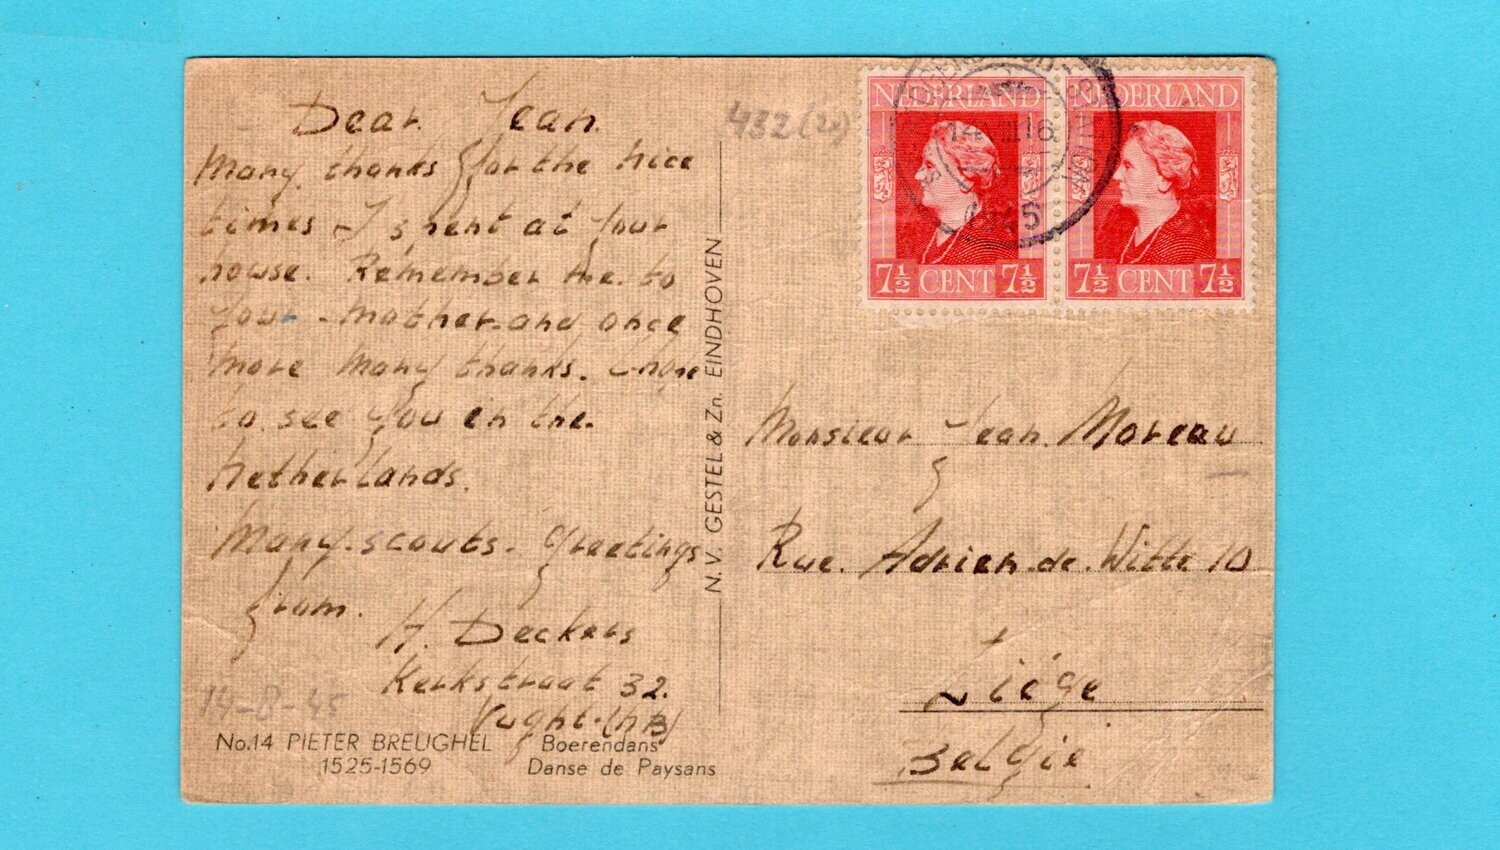 Dear Jean.
Many thanks for the nice
times I spent at your
house. Remember me to
your mother and once
more many thanks. I hope
to see you in the.
Netherlands.
Many scouts. greetings
from.
H. Deckers
Kerkstraat 32.
Vught. (NB)
14-8-45
No.14 PIETER BREUGHEL
1525-1569
Boerendans
Danse de Paysans
N.V. GESTEL & Zn. EINDHOVEN
432 (2x)
NEDERLAND
7½ CENT 7½
NEDERLAND
7½ CENT 7½
14 VIII 16
1945
Monsieur Jean. Moreau
Rue. Adrien. de. Witte 10
Liége
België